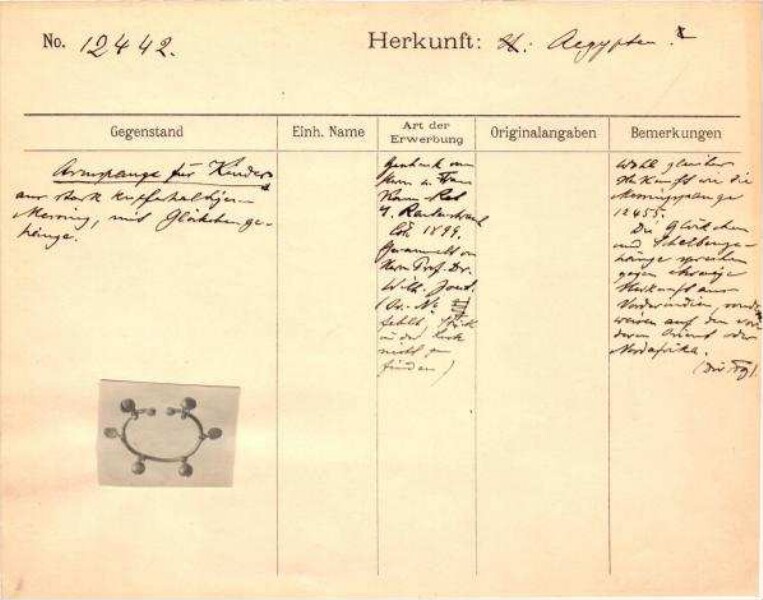 No. 12442.
Herkunft: Aegypten ?
Gegenstand
Einh. Name
Art der
Erwerbung
Originalangaben
Bemerkungen
Armspange für Kinder
aus stark kupferhaltigem
Messing, mit Glöckchenge-
hänge.
Geschenk von
Herrn u. Frau
Rautenstrauch
1899.
Gesammelt von
Herrn Prof. Dr.
Wilh. Joest.
(Or. No.
fehlt, Stück
in der Liste
nicht zu
finden)
Wohl gleicher
Herkunft wie die
Messingspange
12455.
Die Glöckchen
und Schellenge-
hänge sprechen
gegen etwaige
Herkunft aus
Vorderindien,
weisen auf den vor-
deren Orient oder
Nordafrika.